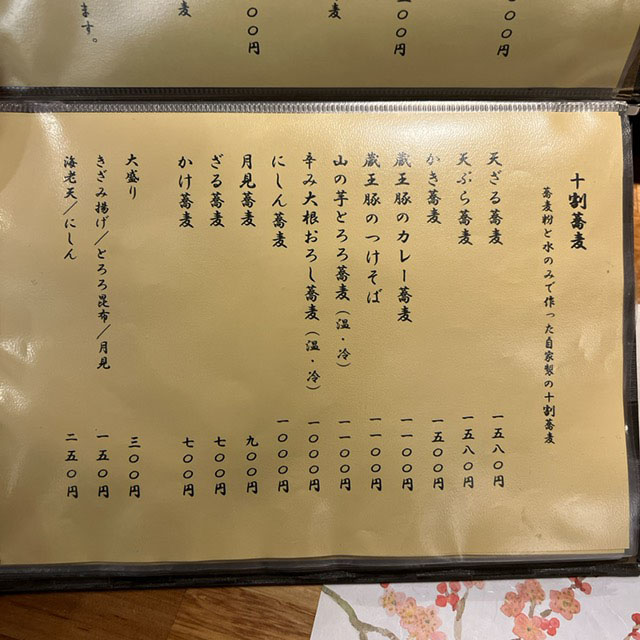 〇〇円
〇〇円
麦
〇〇円
麦
ます。
十割蕎麦
蕎麦粉と水のみで作った自家製の十割蕎麦
天ざる蕎麦 一五八〇円
天ぷら蕎麦 一五八〇円
かき蕎麦 一五〇〇円
蔵王豚のカレー蕎麦 一一〇〇円
蔵王豚のつけそば 一一〇〇円
山の芋とろろ蕎麦(温・冷) 一一〇〇円
辛み大根おろし蕎麦(温・冷) 一〇〇〇円
にしん蕎麦 一〇〇〇円
月見蕎麦 九〇〇円
ざる蕎麦 七〇〇円
かけ蕎麦 七〇〇円
大盛り 三〇〇円
きざみ揚げ/とろろ昆布/月見 一五〇円
海老天/にしん 二五〇円